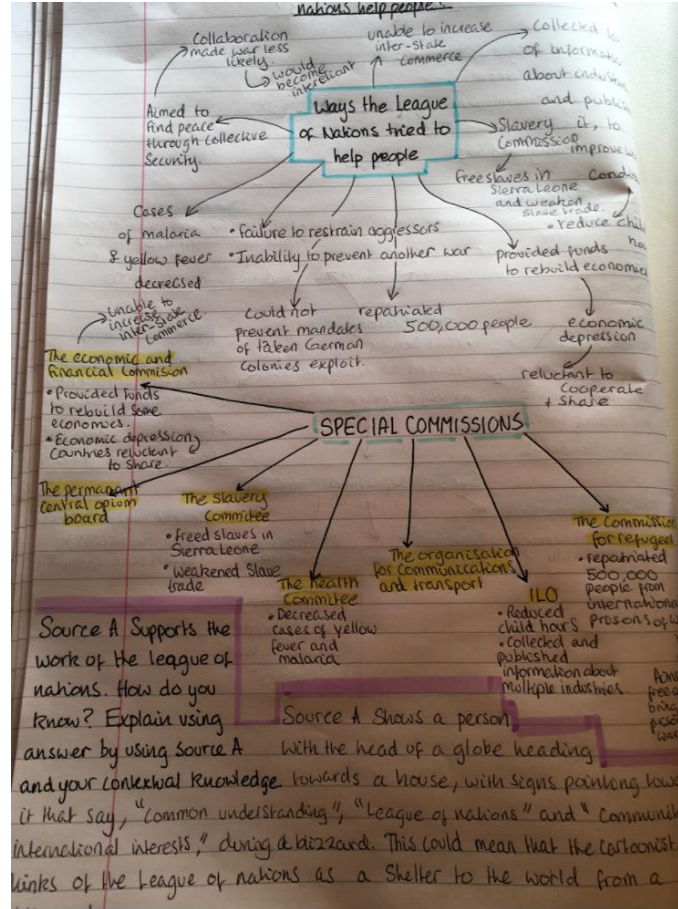 nations help people.
Collaboration
made war less
likely.
would
become
interreliant
unable to increase
inter-state
commerce
Collected
of information
about
and
Aimed to
find peace
through Collective
Security.
Ways the League
of Nations tried to
help people
Slavery
Commission
it, to
improve
free slaves in
Sierra Leone
and weaken
slave trade.
• reduce child
Cases
of malaria
& yellow fever
decreased
• failure to restrain aggressors
• Inability to prevent another war
provided funds
to rebuild economies
Could not
prevent mandates
of taken German
colonies exploit.
repatriated
500,000 people
economic
depression
reluctant to
cooperate
+ share
unable to
increase
inter-state
commerce
The economic and
financial Commision
• Provided funds
to rebuild some
economies.
• Economic depression,
Countries reluctant
to share.
SPECIAL COMMISSIONS
The permanant
central opiom
board
The Slavery
Commitee
• freed slaves in
Sierra Leone
• weakened Slave
trade
The health
Commitee
• Decreased
cases of yellow
fever and
malaria
The organisation
for communications
and transport
ILO
• Reduced
child hours
• Collected and
published
information about
multiple industries.
The Commission
for refugee
• repatriated
500,000
people from
internationa
of
Source A Supports the
work of the league of
nations. How do you
know? Explain using
answer by using Source A
and your contextual knowledge
Source A Shows a person
with the head of a globe heading
towards a house, with signs pointing
it that say, "Common understanding", "League of nations" and "
international interests," during a bizzard. This could mean that the cartoonist
of the League of nations as a Shelter to the world from a